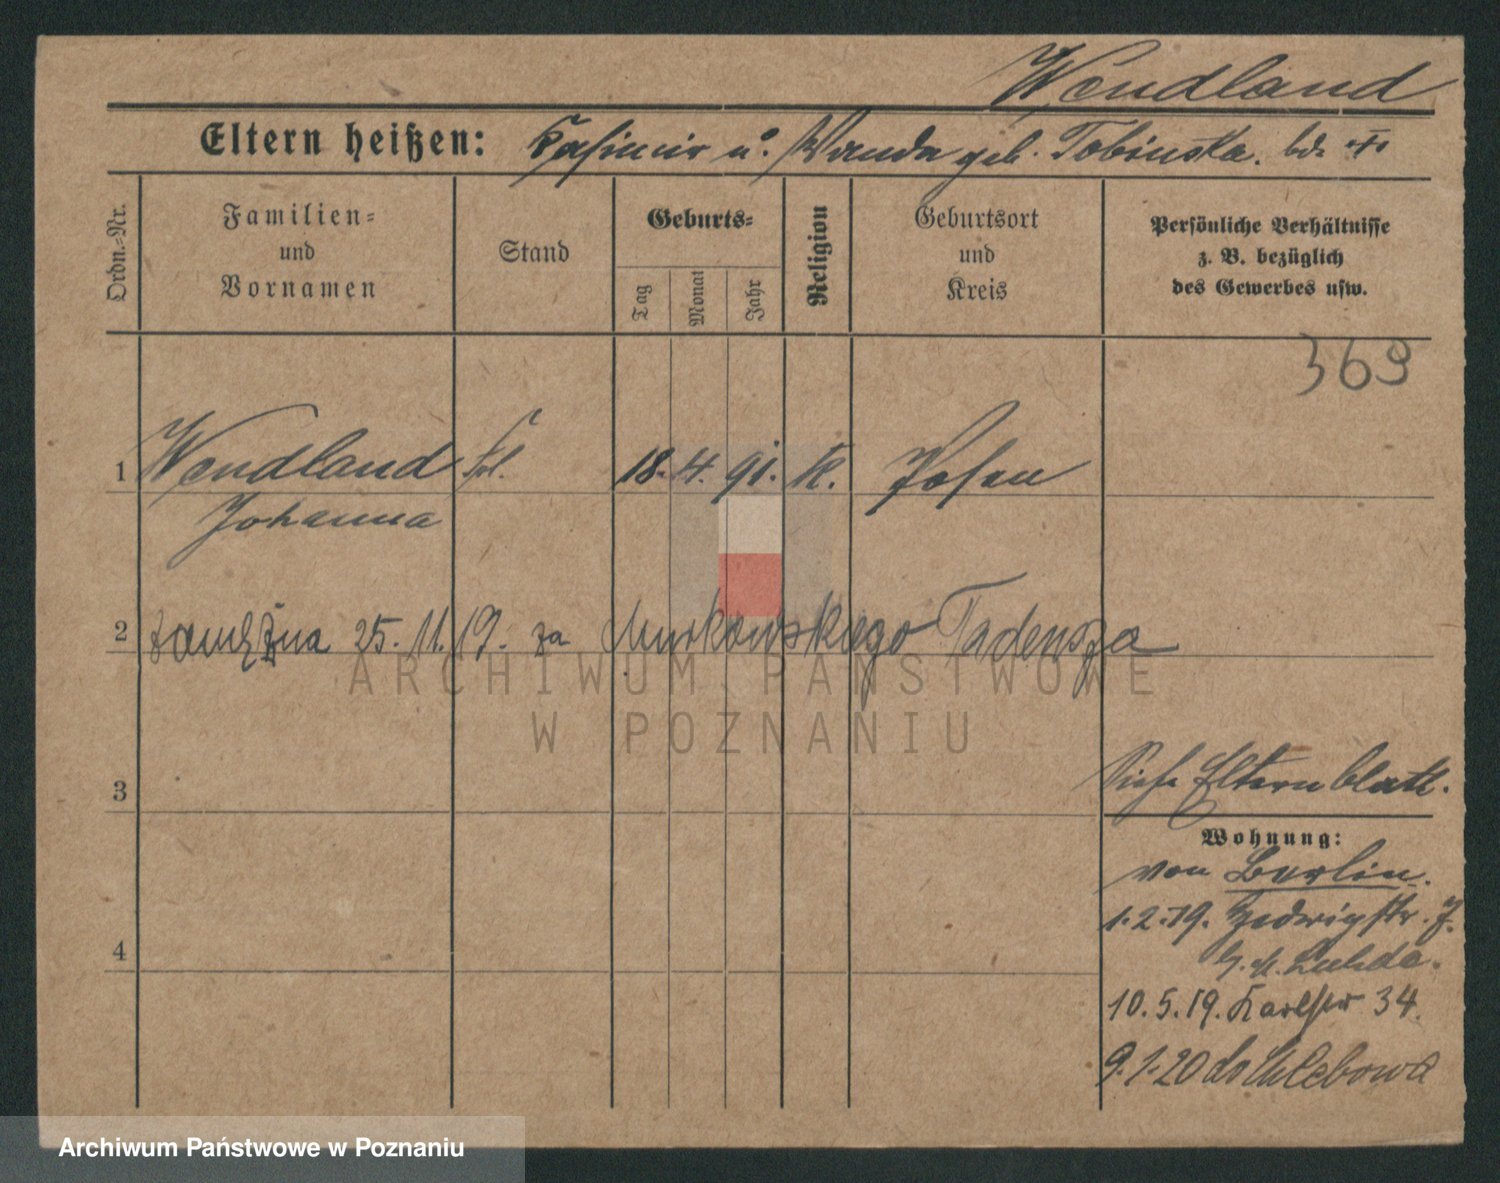 Wendland
Eltern heißen: Kasimir u. Wanda geb. Tobinska. bde
Ordn.-Nr.
Familien-
und
Vornamen
Stand
Geburts-
Tag
Monat
Jahr
Religion
Geburtsort
und
Kreis
Persönliche Verhältnisse
z. B. bezüglich
des Gewerbes usw.
369
1 Wendland Frl. 18. 4. 91. K. Posen
Johanna
2 zamężna 25. 11. 19. za Murkowskiego Tadeusza
ARCHIWUM PAŃSTWOWE
W POZNANIU
3
Siehe Elternblatt.
Wohnung:
von Berlin.
1. 2. 19. Hedwigstr. 7.
b. Lubda.
4
10. 5. 19. Karlstr 34.
9. 1. 20 do Chlebowa
Archiwum Państwowe w Poznaniu